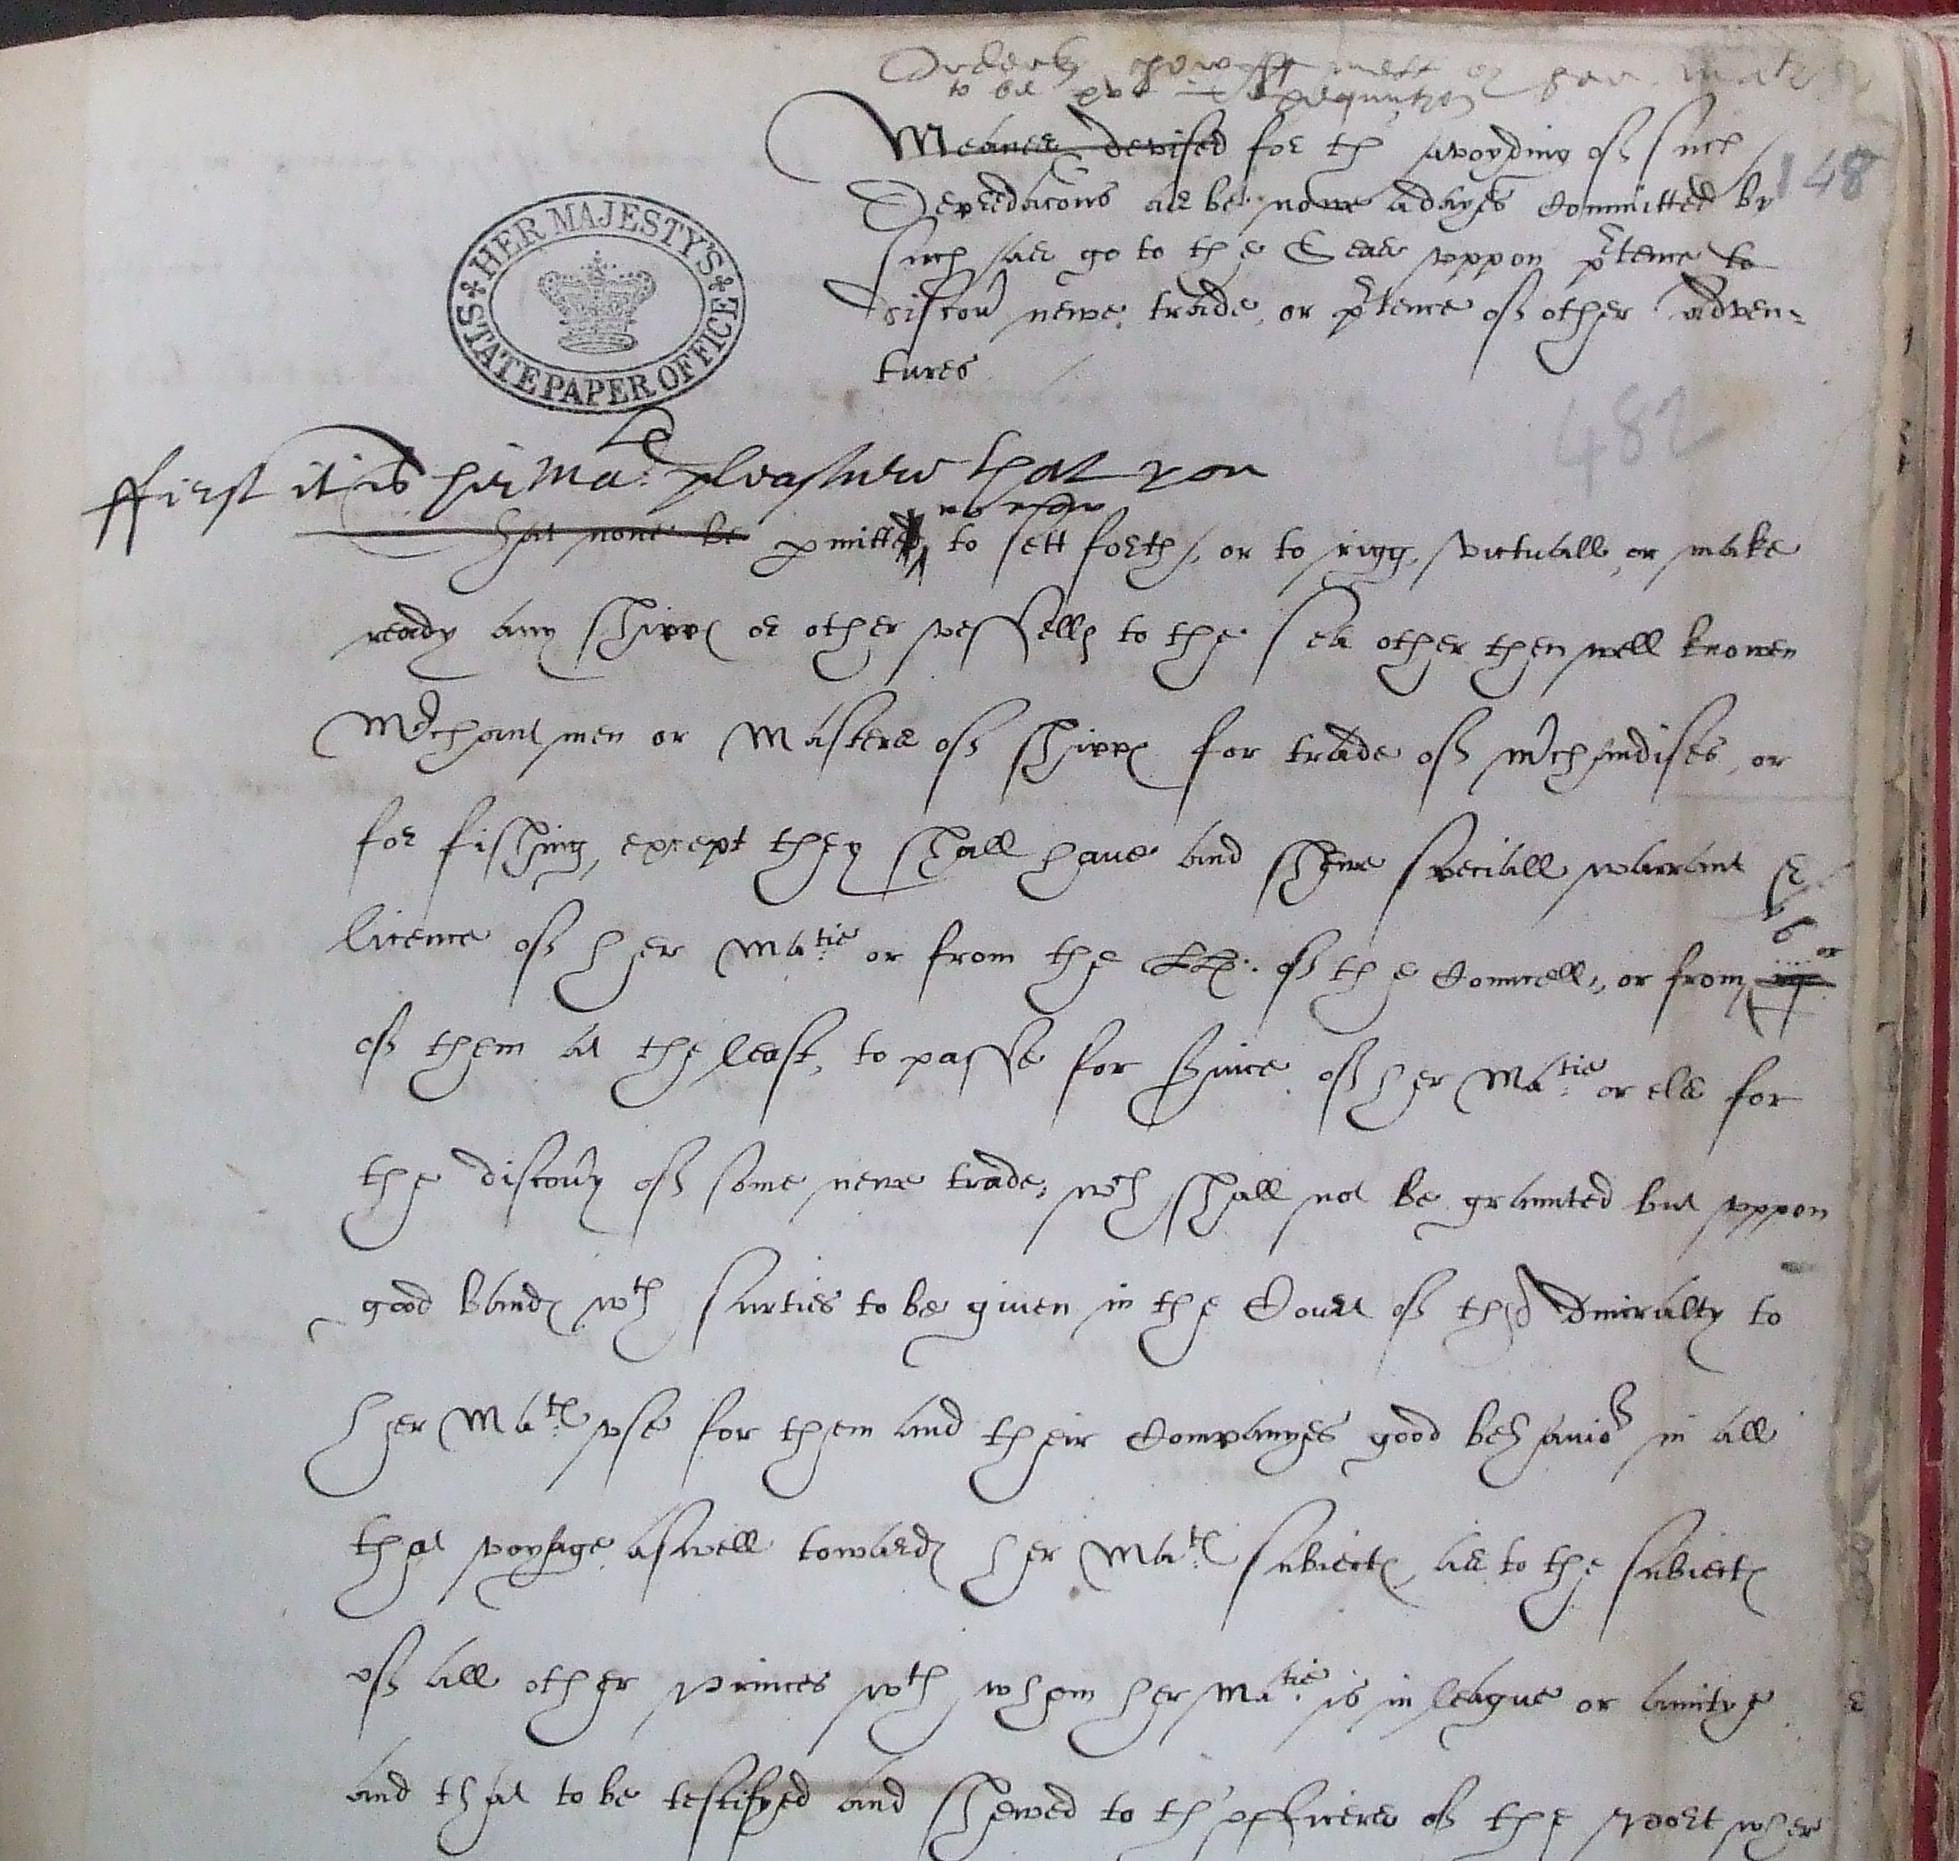 Orders
to be put in execution
Meanes devised for the avoyding of such
148
Depredacons as be nowe adayes Committed by
such as go to the Seas uppon p'tence to
discov' newe trade, or p'tence of other adven=
tures
HER MAJESTY'S STATE PAPER OFFICE
482
ffirst it is hir Ma: pleasure that you
That none be pmitted no man to sett forth, or to rigg, victuall, or make
ready any shipps or other vessells to the sea other then well knowen
M'chant men or Masters of shipps for trade of m'chandises, or
for fishing, except they shall have and shewe speciall warrant &
licence of her Ma:tie or from the LL: of the Counsell, or from 6 or
of them at the least, to passe for s'vice of her Ma:tie or els for
the discov'y of some newe trade, wch shall not be graunted but uppon
good bands wth surties to be given in the Court of th'Admiralty to
her Ma:ts use for them and their Companyes good behavior in all
that voyage aswell towards her Ma:ts subiects, as to the subiects
of all other princes wth whom her Ma:tie is in league or amitye
and that to be testifyed and shewed to th'officers of the port wher